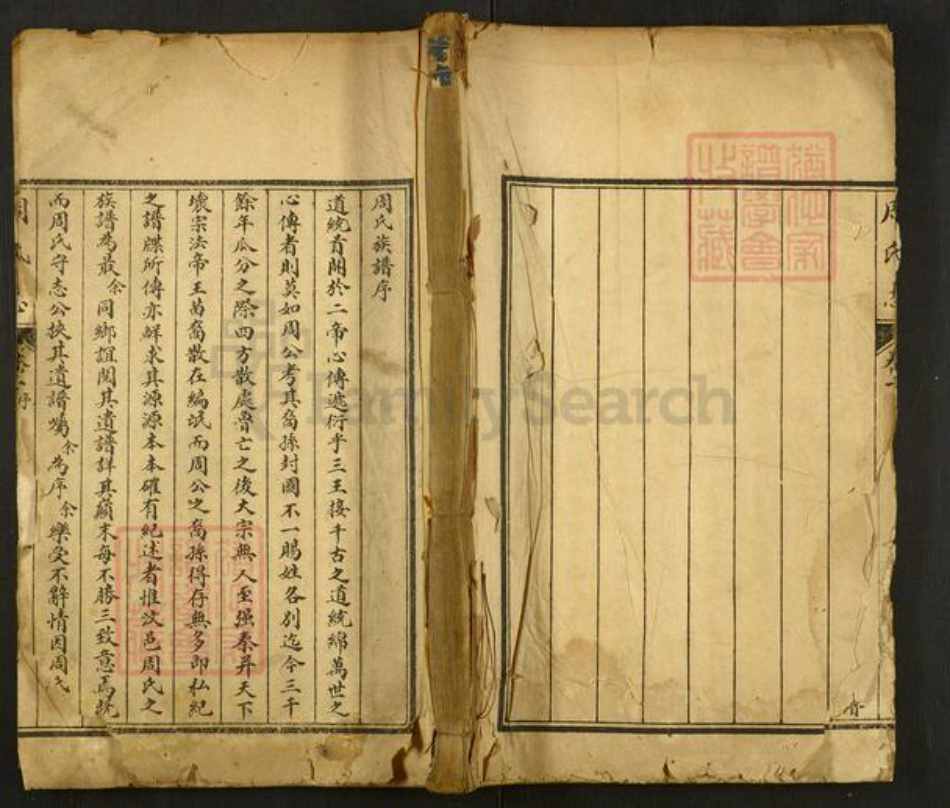 周氏族譜序
道統首開於二帝心傳遞衍乎三王接千古之道統綿萬世之
心傳者則莫如周公考其裔孫封國不一賜姓各別迄今三千
餘年瓜分之際四方散處魯亡之後大宗無人至强秦并天下
壞宗法帝王苗裔散在編氓而周公之裔孫得存無多即私紀
之譜牒所傳亦鮮求其源源本本確有紀述者惟汶邑周氏之
族譜為最余同鄉誼閱其遺譜詳其顛末每不勝三致意焉
而周氏守志公挾其遺譜囑余為序余樂受不辭情因周氏
周氏
卷一
序
FamilySearch